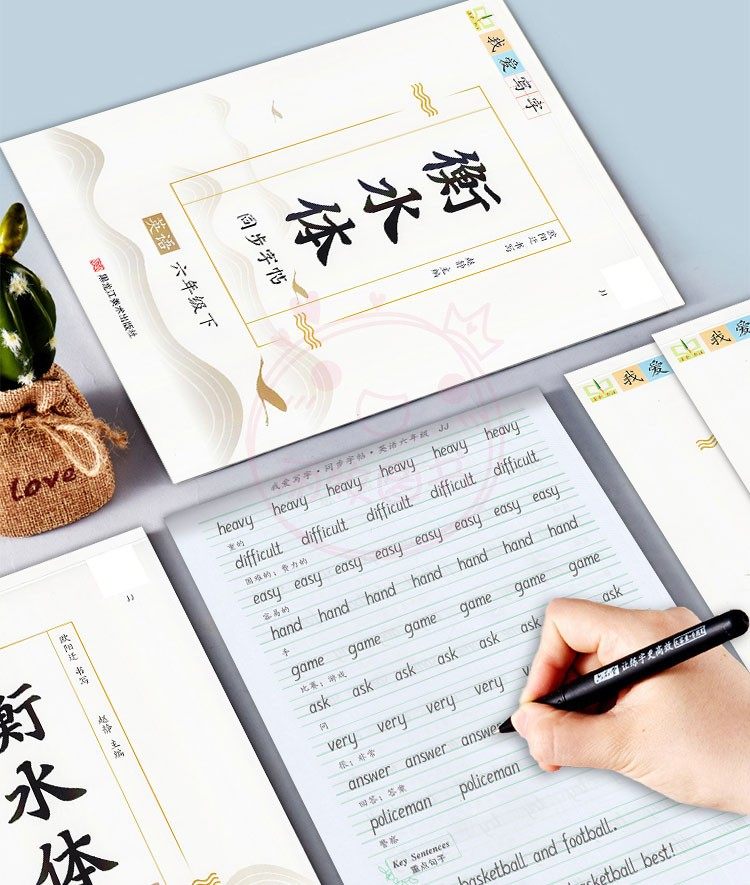 我爱写字
衡水体
欧阳廷 书写
赵静 主编
同步字帖
英语 六年级下
黑龙江美术出版社
JJ
我爱
我爱
love
我爱写字·同步字帖·英语六年级 JJ
heavy heavy heavy heavy heavy heavy
重的
difficult difficult difficult difficult difficult
困难的；费力的
easy easy easy easy easy easy easy
容易的
hand hand hand hand hand hand hand
手
game game game game game game
比赛；游戏
ask ask ask ask ask ask ask
问
very very very very
很；非常
answer answer answer
回答；答案
policeman policeman
警察
Key Sentences
重点句子
basketball and football.
basketball best!
让练字更高效
JJ
欧阳廷 书写
赵静 主编
衡水体